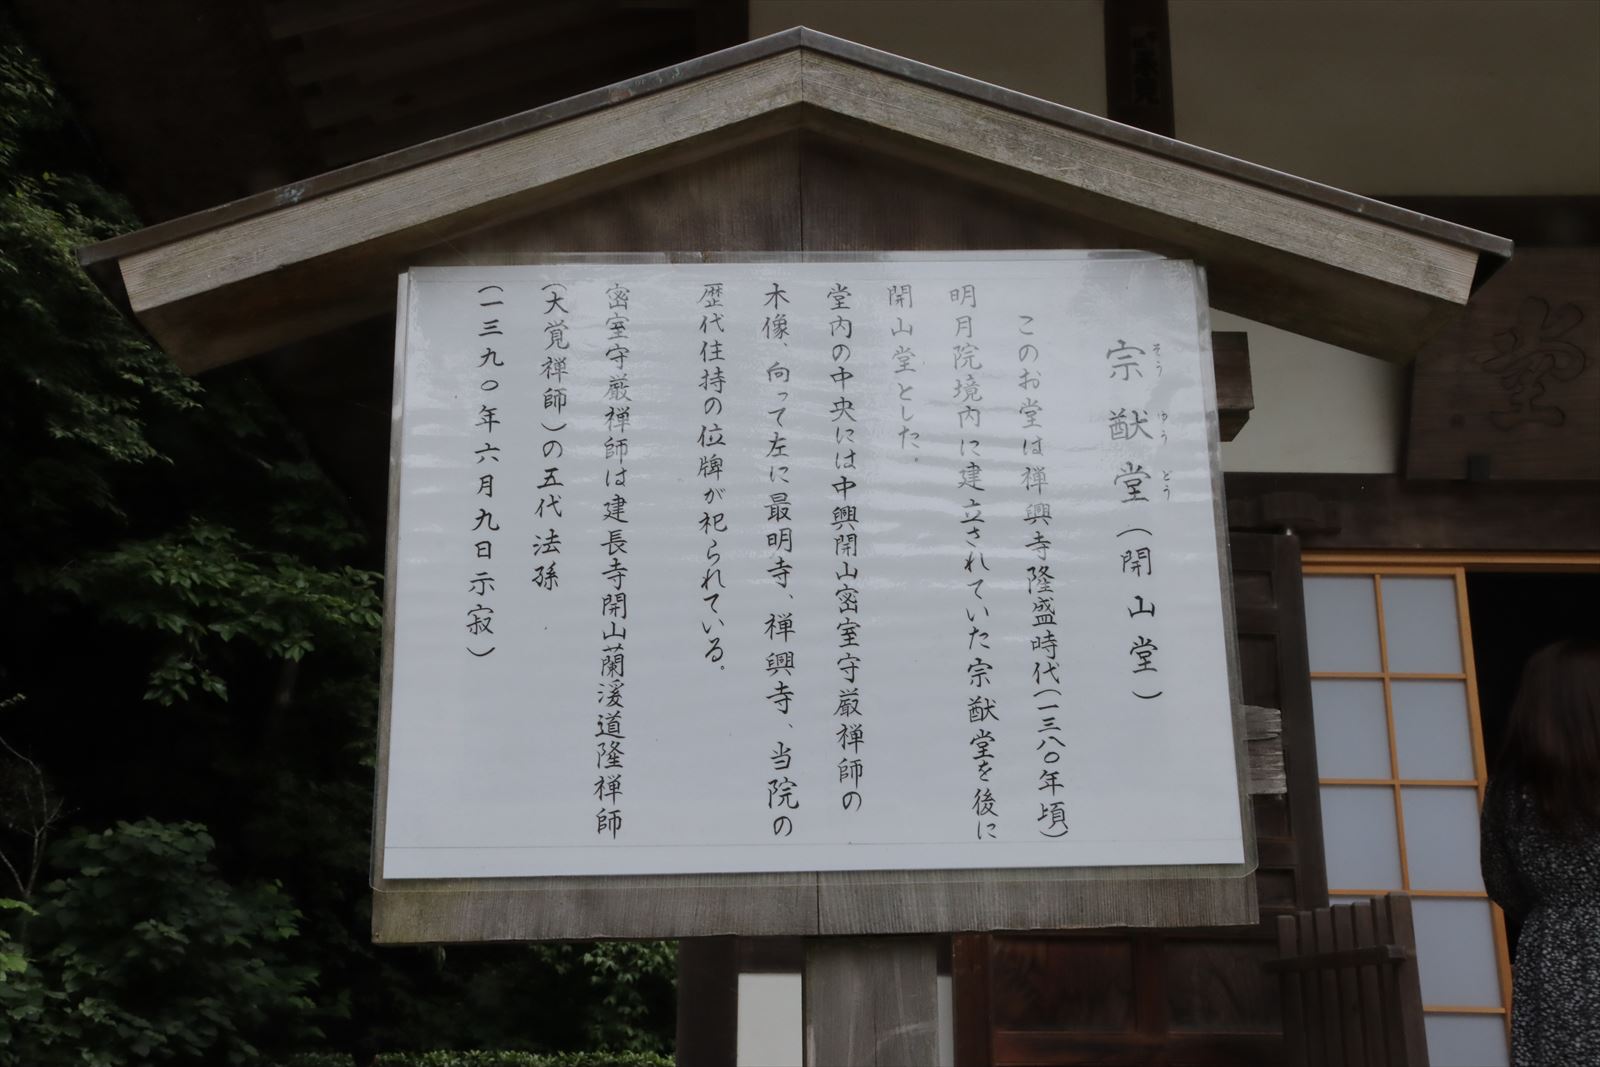 宗猷堂(開山堂)
そう ゆう どう
このお堂は禅興寺隆盛時代(一三八〇年頃)
明月院境内に建立されていた宗猷堂を後に
開山堂とした。
堂内の中央には中興開山密室守厳禅師の
木像、向って左に最明寺、禅興寺、当院の
歴代住持の位牌が祀られている。
密室守厳禅師は建長寺開山蘭溪道隆禅師
(大覚禅師)の五代法孫
(一三九〇年六月九日示寂)
堂